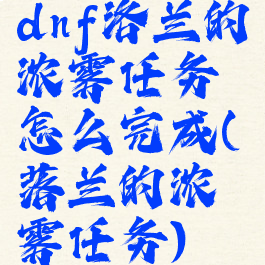 dnf洛兰的
浓雾任务
怎么完成(
落兰的浓
雾任务)